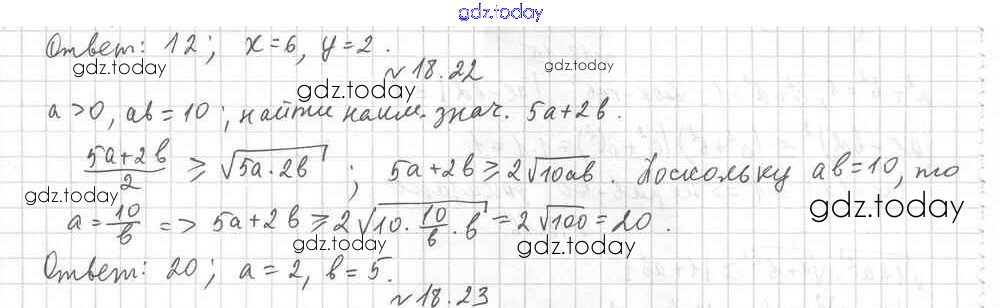 gdz.today
Ответ: 12; x=6, y=2.
gdz.today
№18.22
gdz.today
a>0, ab=10; найти наим. знач. 5a+2b.
(5a+2b)/2 ≥ √(5a·2b); 5a+2b ≥ 2√(10ab). Поскольку ab=10, то
gdz.today
gdz.today
a=10/b => 5a+2b ≥ 2√(10·10/b·b) = 2√100 = 20.
gdz.today
gdz.today
Ответ: 20; a=2, b=5.
№18.23